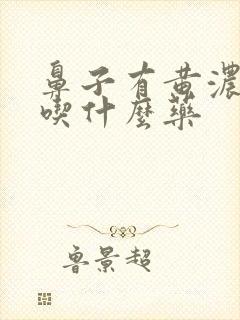 鼻子有黄濃
喫什麼藥
鲁景超